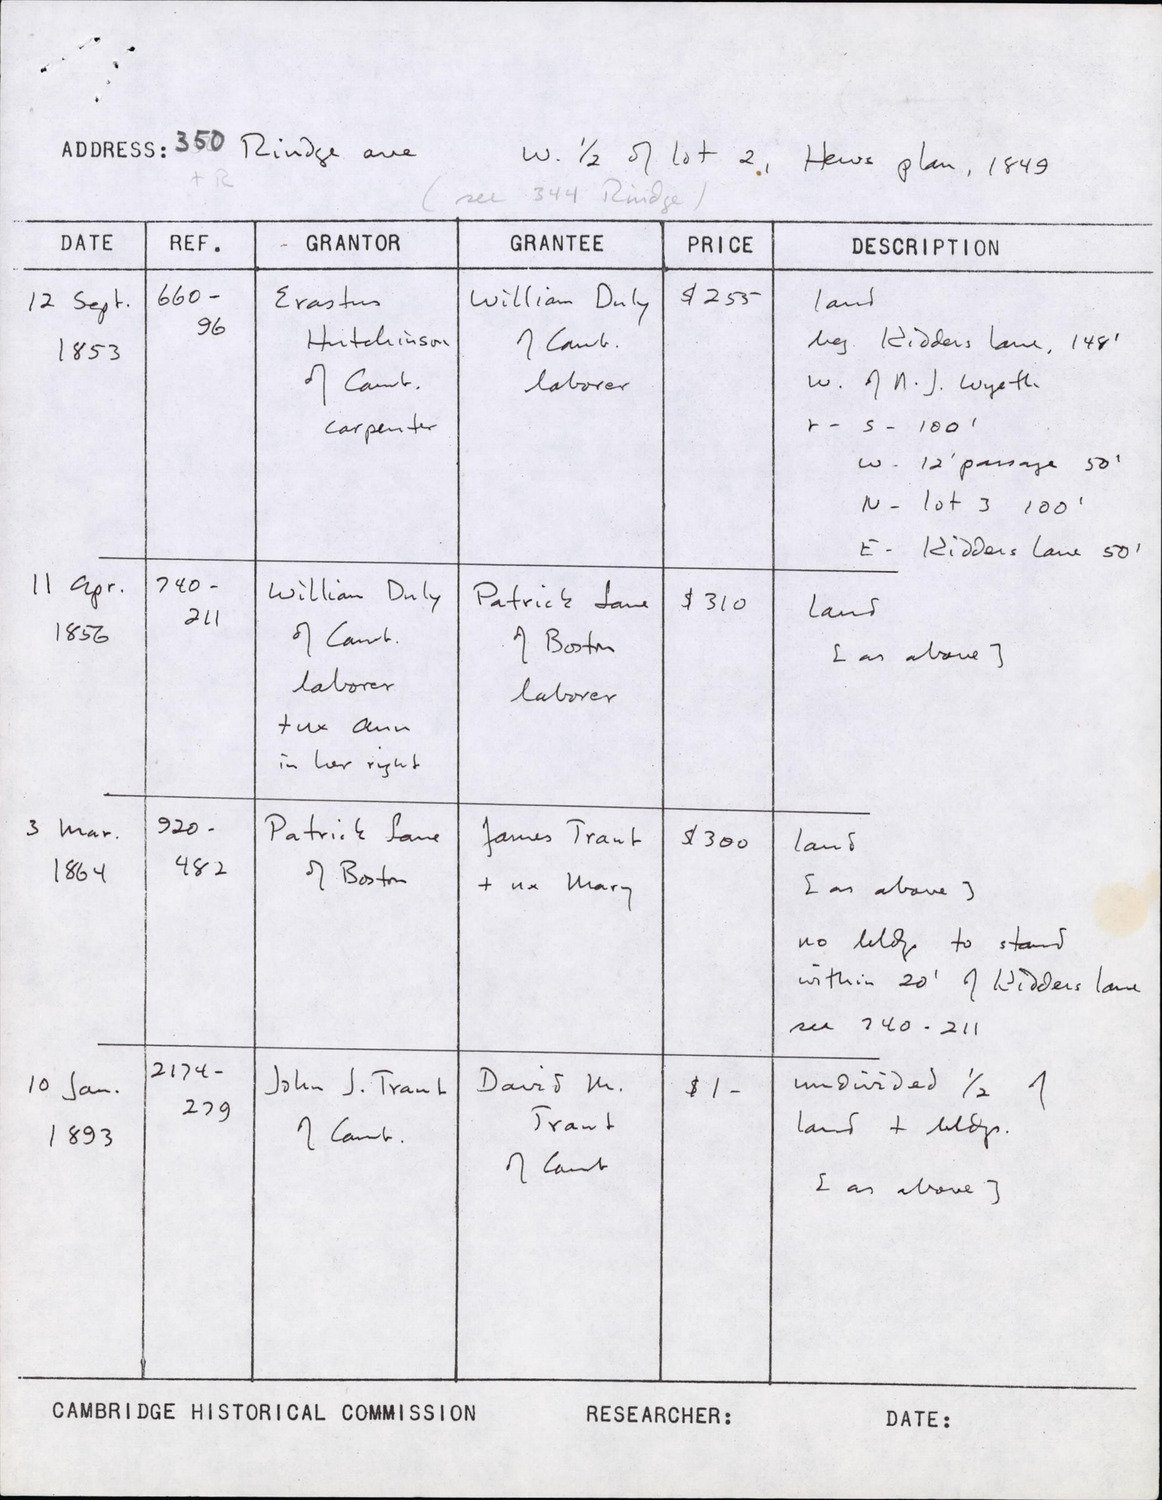 ADDRESS: 350 Rindge ave W. 1/2 of lot 2, Hews plan, 1849
+ R
(see 344 Rindge)
DATE REF. - GRANTOR GRANTEE PRICE DESCRIPTION
12 Sept. 1853
660-96
Erastus
Hutchinson
of Camb.
carpenter
William Duly
of Camb.
laborer
$255
land
beg Kidders Lane, 148'
W. of N. J. Wyeth
r - S - 100'
W - 12' passage 50'
N - lot 3 100'
E - Kidders Lane 50'
11 Apr.
1856
740-
211
William Duly
of Camb.
laborer
+ ux Ann
in her right
Patrick Lane
of Boston
laborer
$310
land
[as above]
3 Mar.
1864
920-
482
Patrick Lane
of Boston
James Trant
+ ux Mary
$300
land
[as above]
no bldg to stand
within 20' of Kidders Lane
see 740-211
10 Jan.
1893
2174-
279
John J. Trant
of Camb.
David M.
Trant
of Camb
$1-
undivided 1/2 of
land + bldgs.
[as above]
CAMBRIDGE HISTORICAL COMMISSION RESEARCHER: DATE: